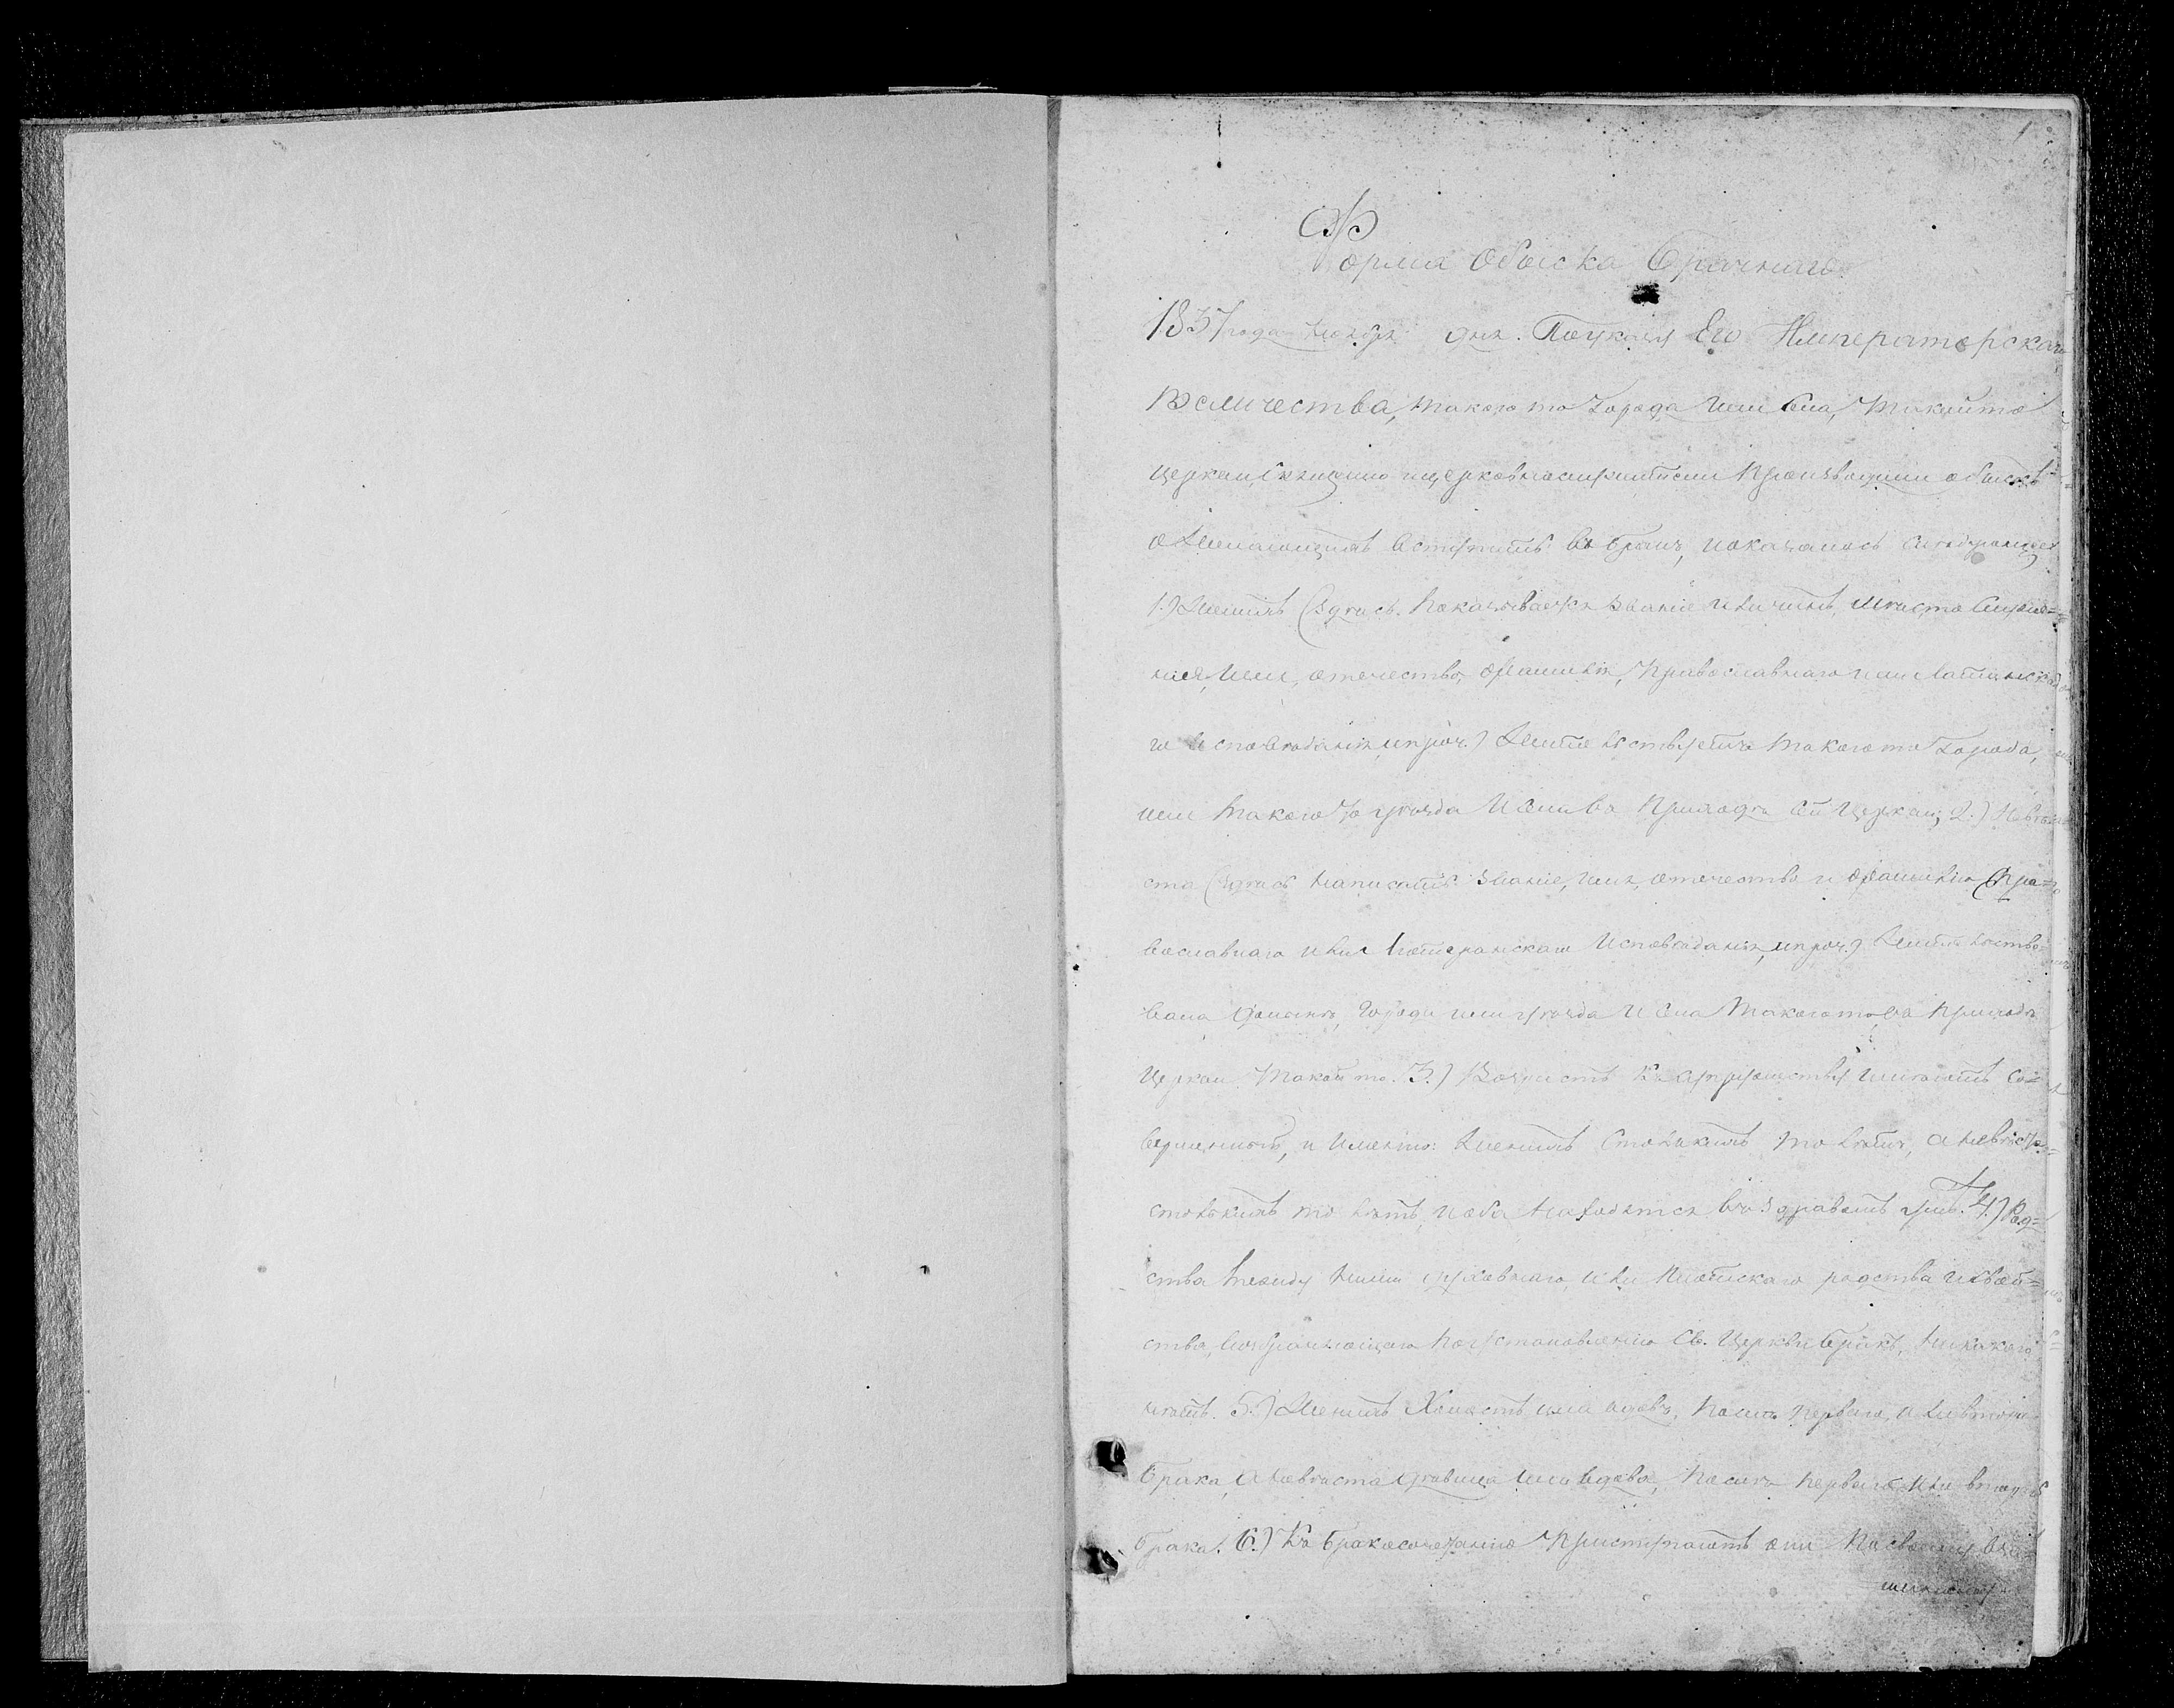 1
Форма Обыска Брачнаго.
1837 года Ноября дня. По указу Его Императорскаго
Величества, такого то города или села, такой то
церкви, Священно и церковнослужители производили обыскъ
о желающихъ вступить въ бракъ, и оказалось следующее
1.) Женихъ (здѣсь показывается званіе или чинъ, мѣсто служе=
нія, имя, отечество, фамилія, православнаго или Латинска
го исповѣданія, и проч.) жительствуетъ такого то города,
или такого то уѣзда и села въ приходѣ сей церкви; 2.) Невѣ
ста (здѣсь написать званіе, имя, отечество и фамилію пра=
вославнаго или Лютеранскаго исповѣданія, и проч.) жительство=
вала города или уѣзда и села такого то, въ приходѣ
церкви такой то. 3.) Возрастъ къ супружеству имѣютъ со=
вершенный, и именно: женихъ столькихъ то лѣтъ, а невѣста
столькихъ то лѣтъ, и оба находятся въ здравомъ умѣ. 4.) Род=
ства между ними духовнаго, или плотскаго родства и свой=
ства, возбраняющаго по установленію Св. Церкви бракъ, никакого
нѣтъ. 5.) Женихъ холостъ или вдовъ, послѣ перваго, или втораго
брака, а невѣста дѣвица или вдова, послѣ перваго или втораго
брака. 6.) Къ бракосочетанію приступаютъ они по своему вза=
имному